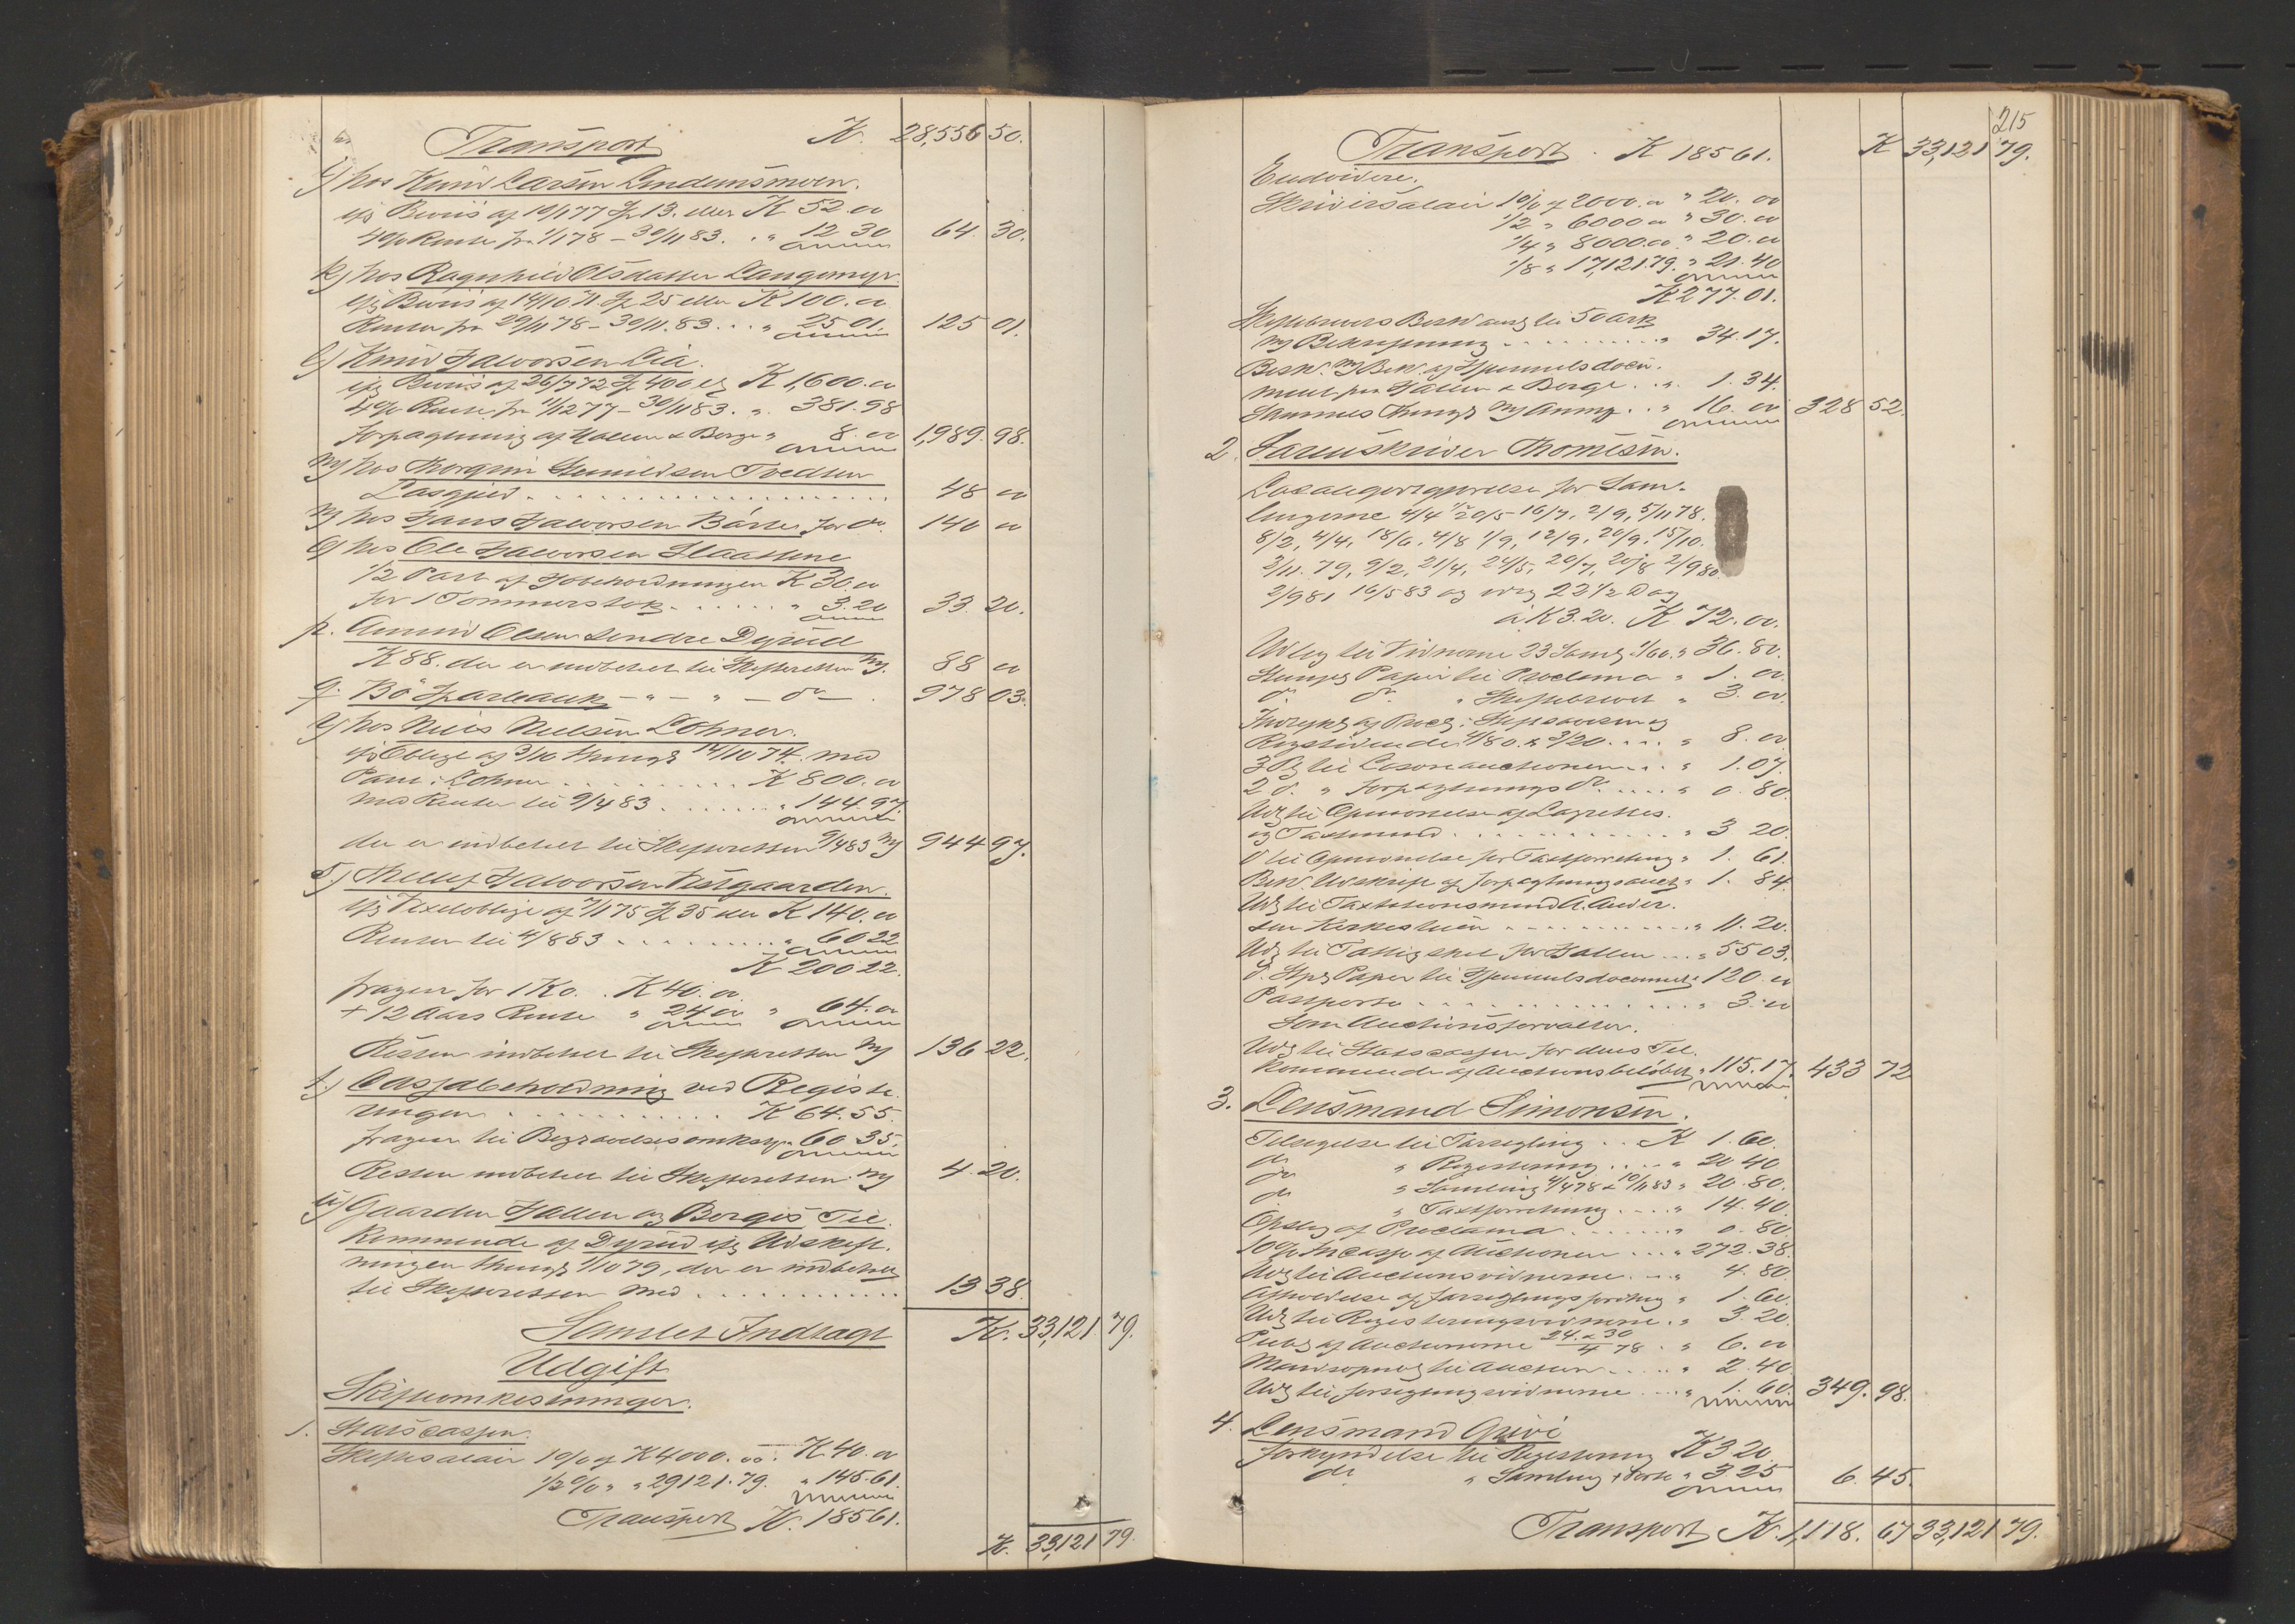 Transport K. 28,556 50.
i) hos Knud Larsen Lindemsmoen.
efg Beviis af 10/1 77 Sp 13. eller K 52. 00
4 % Rente fra 1/1 78 – 30/11 83. . " 12 30 64. 30.
k) hos Ragnhild Olsdatter Langemyr
efg Beviis af 14/10 71. Sp 25 eller K 100. 00
Renter fra 29/11 78 – 30/11. 83. . . " 25 01. 125 01.
l) Knud Halvorsen Lia.
efg Beviis af 26/7 72 Sp 400 elg K 1,600. 00
4 % Rente fra 11/12 77 – 30/11 83. . " 381. 98
Forpagtning af Hallen & Borge " 8. 00 1,989. 98.
m) hos Thorgrim Gunildsen Tvedten
Løsgjeld . . . . . . 48 00
n) hos Hans Halvorsen Bárse for do. 140 00
o) hos Ole Halvorsen Slaattene
1/2 Part af K 30. 00
for 1 Tømmerstok . . . . . . " 3. 20 33. 20.
p. Amund Olsen søndre Dyrud
K 88. der er indbetalt til Skifteretten m 88 00
q. Bö Sparebank – " – " – do – . 978 03.
r) hos Niels Nielsen Lohner.
efg Oblig af 3/10 thingl 14/10 74. med
Pant i Lohner . . . . . . K 800. 00
med Renter til 9/4 83 . . . . . . " 144. 97.
der er indbetalt til Skifteretten 9/4 83 m 944 97.
s.) Halvorsen Vestgaarden.
efg Vexeloblig af 7/1 75 Sp 35 eller K 140. 00
Renter til 4/8 83 . . . . . . " 60 22
K 200 22.
fragaar for 1 Ko. . K 40. 00
+ 12 Aars Rente " 24 00 " 64. 00
Resten indbetalt til Skifteretten m 136 22.
t.) Cassabeholdning ved Registe.
ringen . . . . . . K 64. 55.
fragaar til Begravelsesomkostgn 60 35.
Resten indbetalt til Skifteretten m 4. 20.
u) Gaarden Hallen og Borges Til.
kommende af Dyrud efg Udskift.
ningen thingl 1/10 79, der er indbetalt
til Skifteretten med . . . . . . 13 38.
Samlet Indtægt K. 33,121. 79.
Udgift
Skifteomkostninger.
1. Statscassen.
Skiftesalair 1 0/0 af K 4000. 00. K 40. 00
1/2 0/0 " " 29121. 79. " 145. 61.
Transport K. 185 61. K. 33,121 79.
215
Transport . K 185 61. K 33,121 79.
Endvidere.
Skriversalair 1 0/0 af 2000. 00 " 20. 00
1/2 " 6000 00 " 30. 00
1/4 " 8000. 00 " 20. 00
1/8 " 17,121. 79. " 21. 40
K 277. 01.
Skiftebrevs Beskr anslg til 50 ark
m Bekræftning . . . . . . " 34. 17.
Beskr. m Bekr. af Hjemmelsdocu.
ment paa Hallen & Borge . . " 1. 34.
Sammes Thinglg m Anmg . . " 16. 00 328 52.
2. Sorenskriver Thomesen.
Localgodtgjørelse for Sam.
lingerne 4/4 20/5 – 16/7. 2/9, 5/11 78.
8/2, 4/4, 18/6. 4/8 1/9, 12/9, 20/9, 15/10.
2/11. 79, 9/2, 21/4, 24/5, 20/7, 20/8 2/9 80.
2/9 81 16/5 83 og 22 1/2 Dag
a K 3. 20. K 72. 00.
Udlæg til Vidnerne 23 Samlg 1/60. " 36. 80.
Stempg Papir til Proclama " 1. 00.
do do " Skiftebrevet " 3. 00.
Indrykg af Procl i Stiftsavisen og
Rigstidende 4/80. & 3/20. . . . " 8. 00
3 til Løsøreauctionen . . . " 1. 07.
2 d. " Forpagtnings do . . . . " 0. 80.
Udg til Opnævnelse af Lagrettes.
og Taxtmænd . . . . . . " 3 20.
d til Opnævnelse for Taxtforretning " 1. 61.
Bekr. Udskrift af forpagtningsauct " 1. 84.
Udg til Taxationsmand A. Ander.
sen Kirkestuen . . . . . . " 11. 20.
Udg til for Hallen . . . " 55 03.
d. Stpg Papir til Hjemmelsdocument " 120. 00
Postporto . . . . . . " 3. 00
Som Auctionsforvalter.
Udg til Statscassen for dens Til.
kommende af Auctionsbeløbet " 115. 17. 433 72
3. Lensmand Simonsen.
Tilsigelse til Forsegling . . K 1. 60.
do " Registrering . . . . " 20 40
do " Samling 4/4 78 & 10/11 83 " 20. 80.
do " Taxtforretning . . . . " 14. 40.
Opslg af Proclama . . . . . . " 0. 80.
10 % Incasso af Auctionen . . . " 272. 38.
Udg til Auctionsvidnerne. . . " 4. 80
Afholdelse af forseglingsforretng " 1. 60.
Udg til Registreringsvidnerne. " 3. 20.
Publ af Auctionerne 24. & 30/4 78 . " 6. 00
Auction . . . . " 2. 40
Udg til forseglingsvidnerne . . . " 1. 60. 349. 98.
4. Lensmand Grivi
Forkyndelse til Registrering K 3 20.
do " Samling + Porto " 3. 25 6. 45.
Transport K. 1,118. 67 33,121 79.